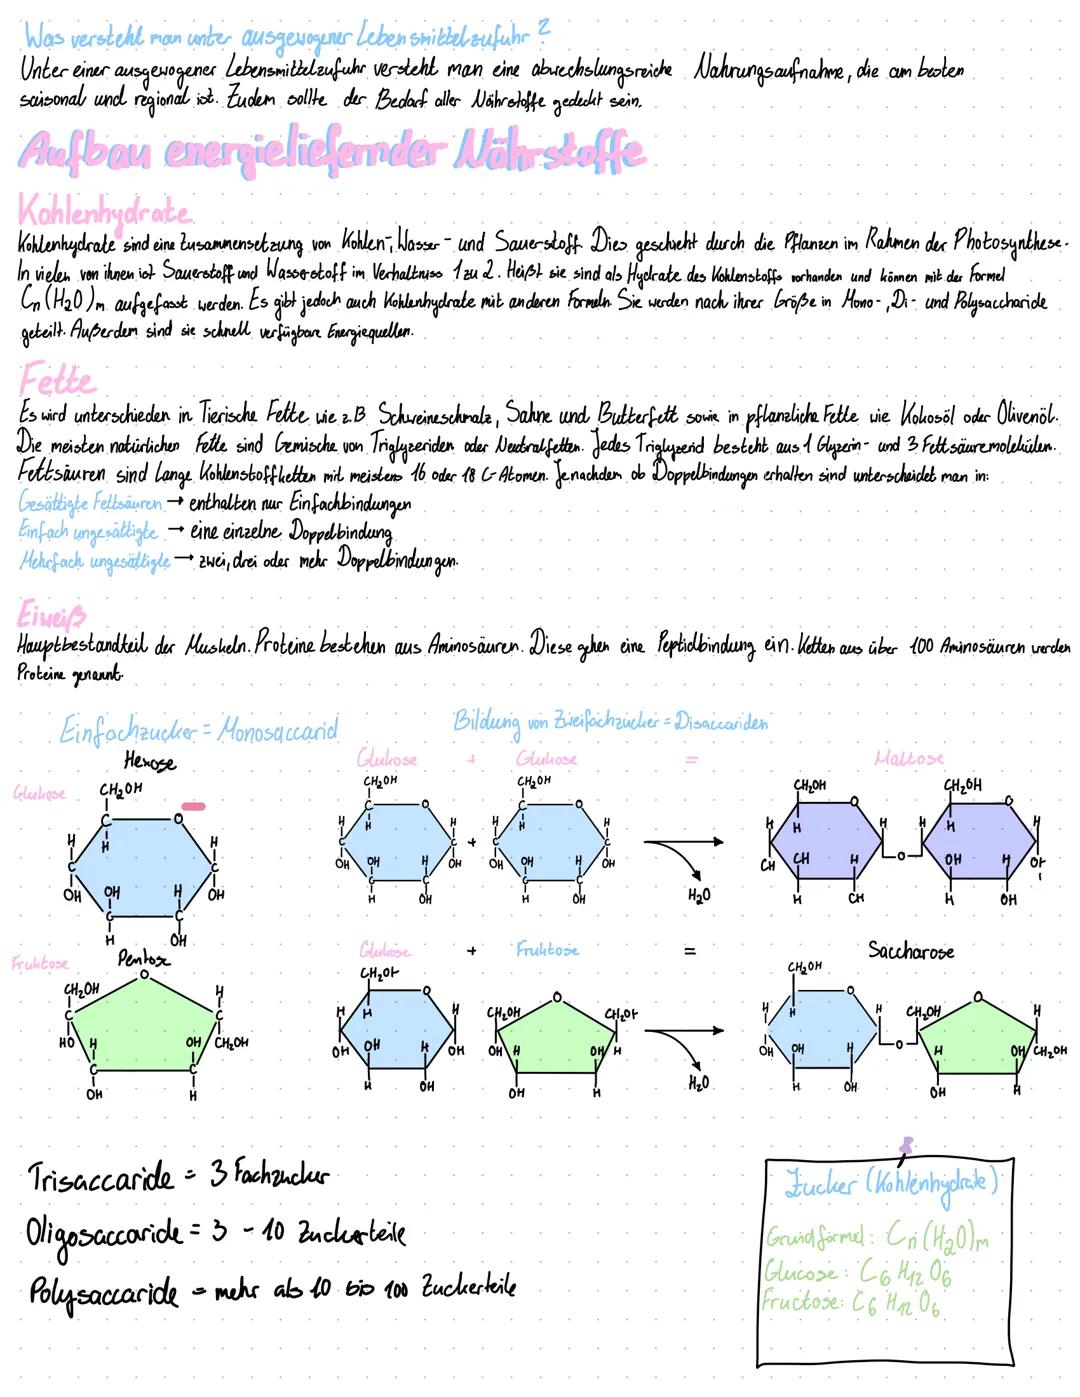 Was versteht man unter ausgewogener Lebensmittelzufuhr?
Unter einer ausgewogener Lebensmittelzufuhr versteht man eine abwechslungsreiche Nahrungsaufnahme, die am besten
saisonal und regional ist. Zudem sollte der Bedarf aller Nährstoffe gedeckt sein.
Aufbau energieliefernder Nährstoffe
Kohlenhydrate
Kohlenhydrate sind eine Zusammensetzung von Kohlen-, Wasser- und Sauerstoff. Dies geschieht durch die Pflanzen im Rahmen der Photosynthese.
In vielen von ihnen ist Sauerstoff und Wasserstoff im Verhältniss 1 zu 2. Heißt sie sind als Hydrate des Kohlenstoffs vorhanden und können mit der Formel
Cn(H2O)m aufgefasst werden. Es gibt jedoch auch Kohlenhydrate mit anderen Formeln. Sie werden nach ihrer Größe in Mono-, Di- und Polysaccharide
geteilt. Außerdem sind sie schnell verfügbare Energiequellen.
Fette
Es wird unterschieden in Tierische Fette wie z.B Schweineschmalz, Sahne und Butterfett sowie in pflanzliche Fette wie Kokosöl oder Olivenöl.
Die meisten natürlichen Fette sind Gemische von Triglyzeriden oder Neutralfetten. Jedes Triglyzerid besteht aus 1 Glyzerin- und 3 Fettsäuremolekülen.
Fettsäuren sind Lange Kohlenstoffketten mit meistens 16 oder 18 C-Atomen. Je nachdem ob Doppelbindungen erhalten sind unterscheidet man in:
Gesättigte Fettsäuren → enthalten nur Einfachbindungen
Einfach ungesättigte → eine einzelne Doppelbindung
Mehrfach ungesättigte → zwei, drei oder mehr Doppelbindungen.
Eiweiß
Hauptbestandteil der Muskeln. Proteine bestehen aus Aminosäuren. Diese gehen eine Peptidbindung ein. Ketten aus über 100 Aminosäuren werden
Proteine genannt.
Einfachzucker = Monosaccarid
Bildung von Zweifachzucker = Disaccariden
Hexose
Glukose + Glukose = Maltose
Glukose
CH2OH
CH2OH CH2OH CH2OH CH2OH
C O
H H H
C C
OH OH H OH
C C
H OH
+
H2O
Fruktose
Pentose
Glukose + Fruktose = Saccharose
CH2OH O H
C C
HO H OH CH2OH
C C
OH H
CH2OH CH2OH CH2OH
H2O
CH2OH CH2OH CH2OH
Trisaccaride = 3 Fachzucker
Oligosaccaride = 3 - 10 Zuckerteile
Polysaccaride = mehr als 10 bis 100 Zuckerteile
Zucker (Kohlenhydrate)
Grundformel: Cn(H2O)m
Glucose: C6 H12 O6
Fructose: C6 H12 O6